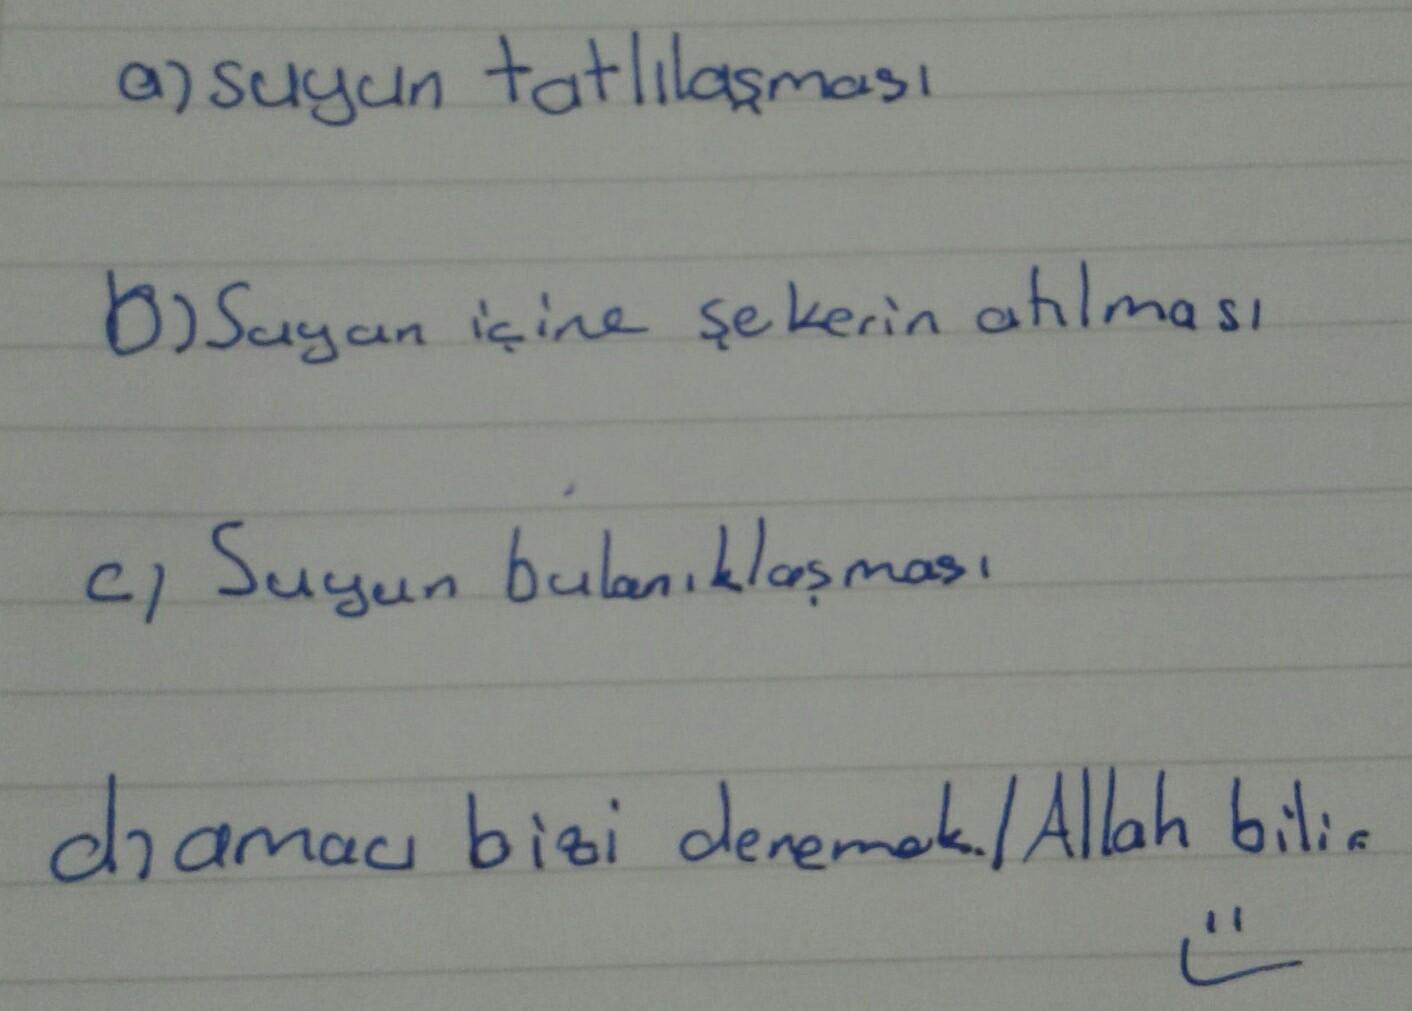 a) suyun tatlılaşması
b) Suyun içine şekerin atılması
c) Suyun bulanıklaşması
d) amacı bizi denemek./Allah bilir